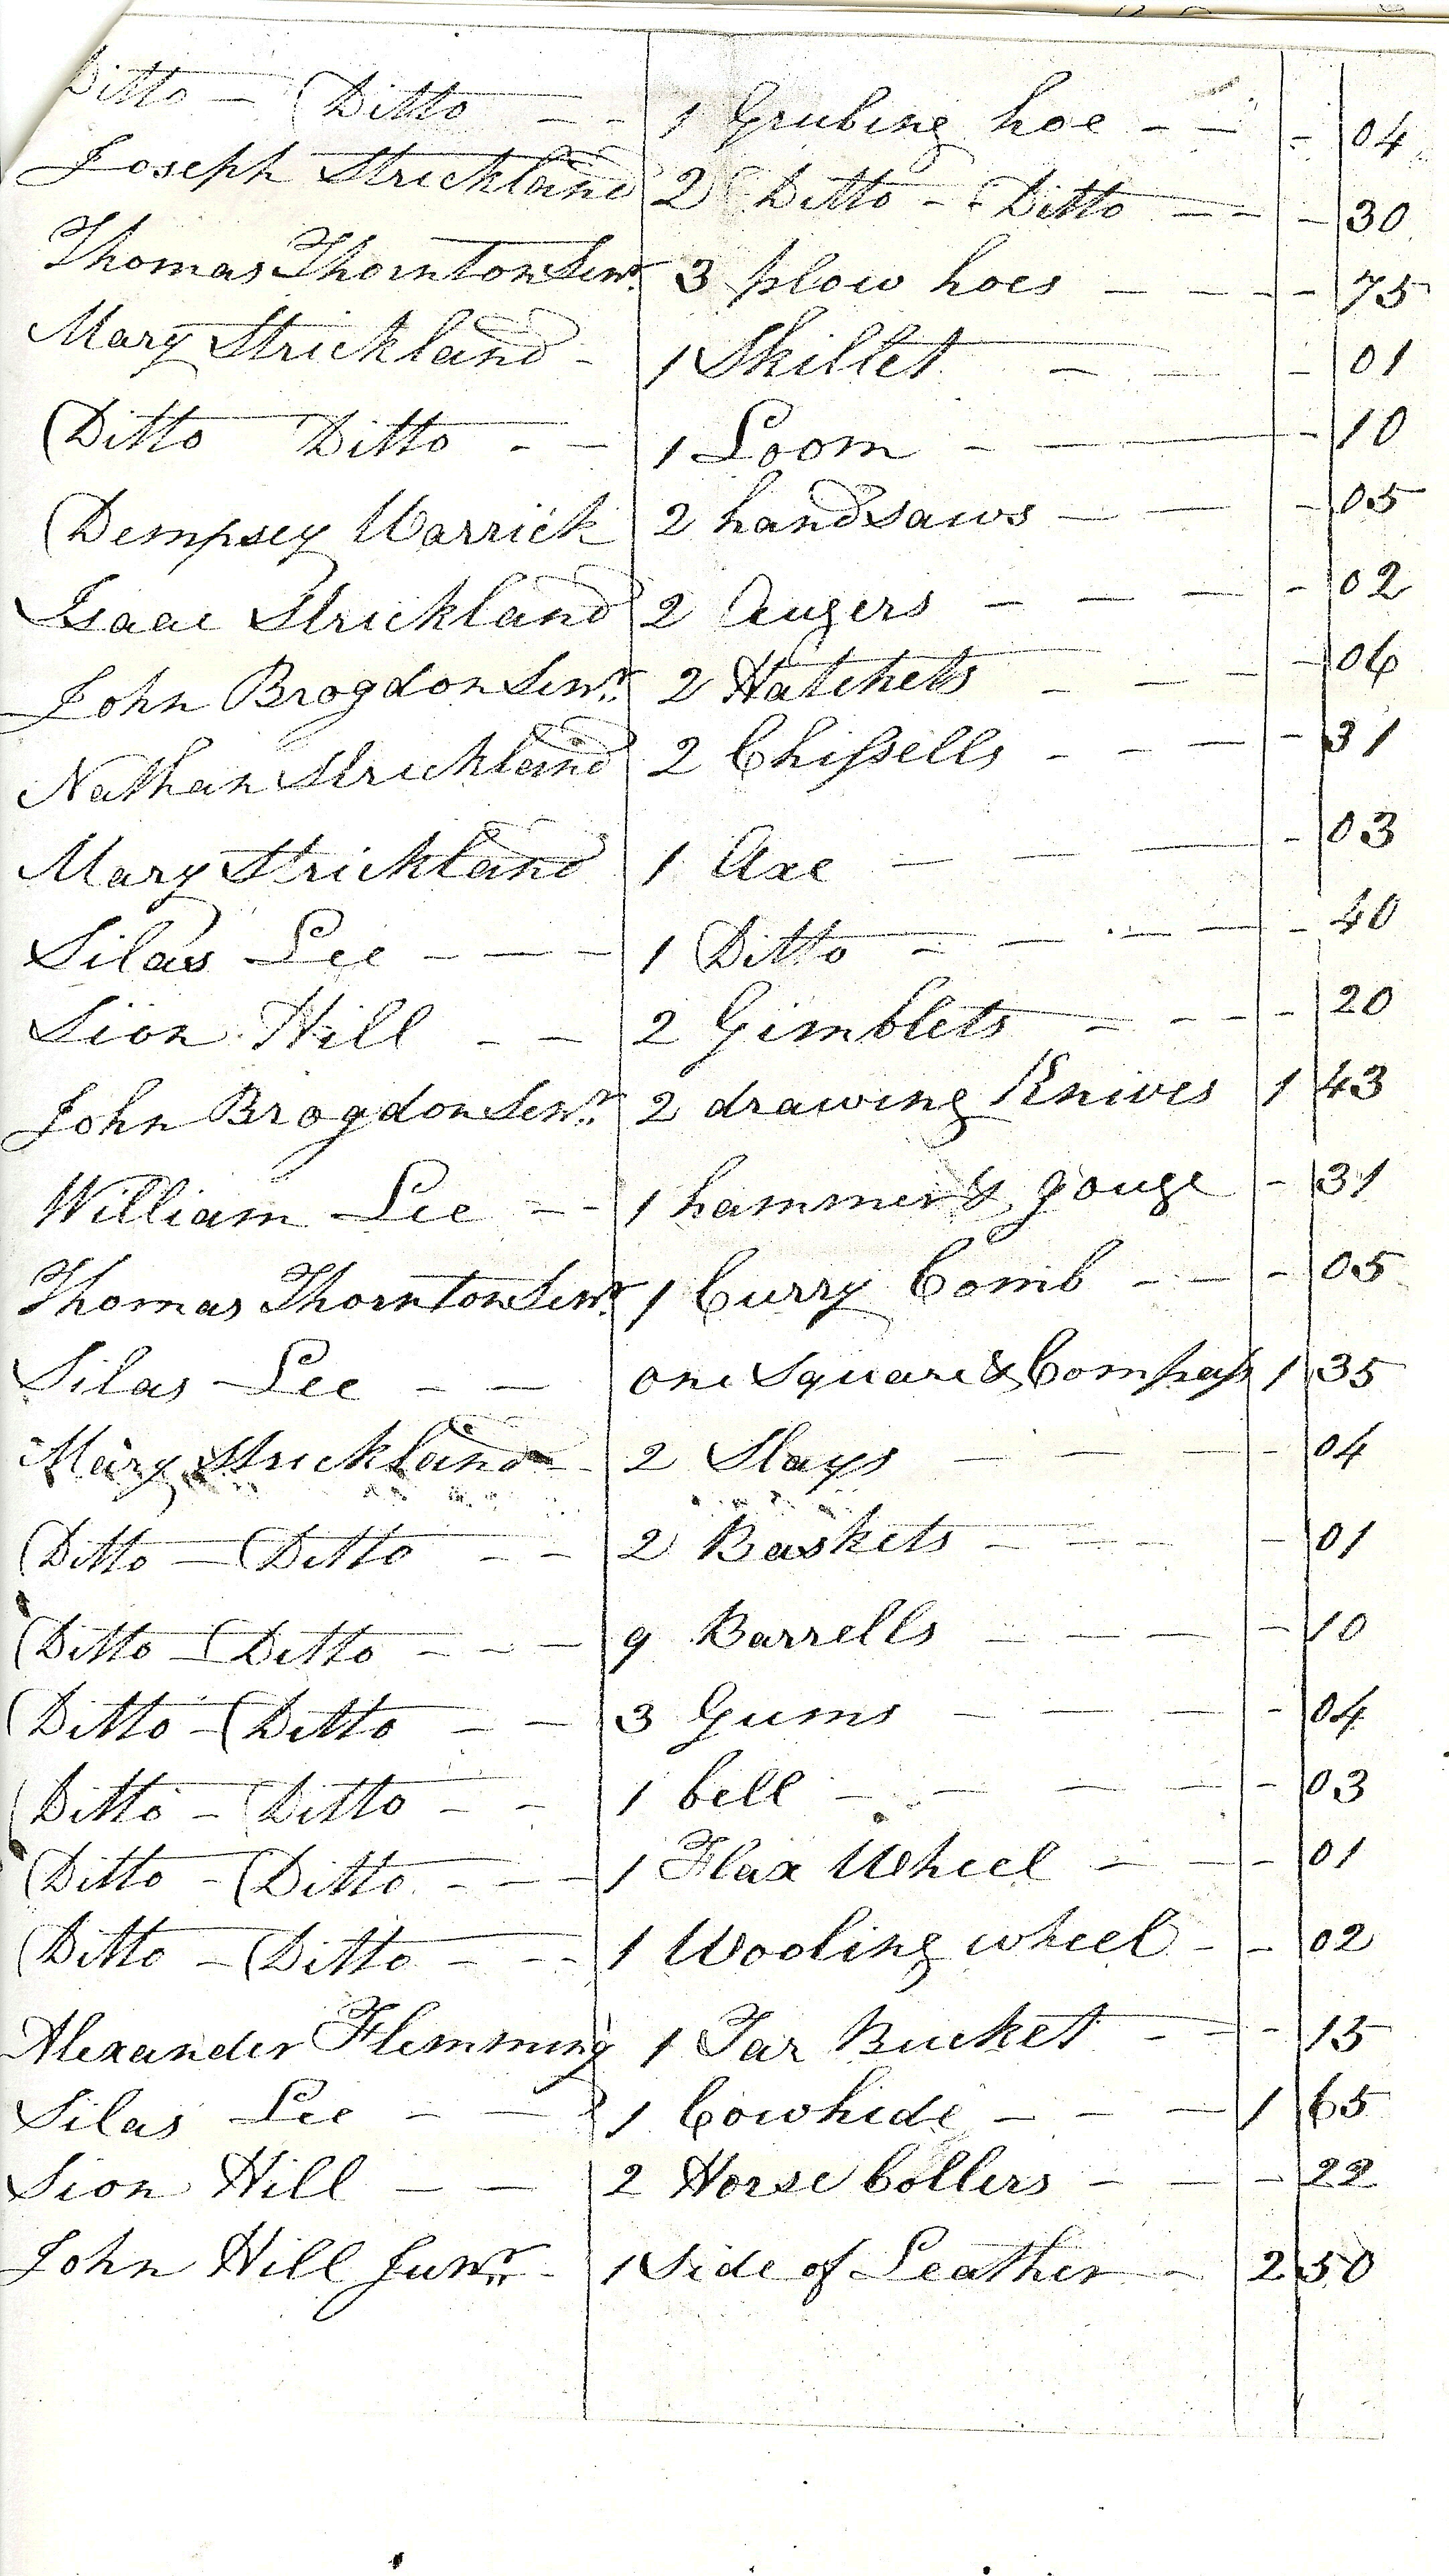 Ditto - Ditto - - 1 Grubing hoe - - - 04
Joseph Strickland 2 Ditto - - Ditto - - - 30
Thomas Thornton Senr. 3 plow hoes - - - - 75
Mary Strickland - 1 Skillet - - - 01
Ditto Ditto - - 1 Loom - - - 10
Dempsey Warrick 2 handsaws - - - 05
Isaac Strickland 2 Augers - - - - 02
John Brogdon Senr. 2 Hatchets - - - - 06
Nathan Strickland 2 Chissells - - - - 31
Mary Strickland 1 Axe - - - - 03
Silas Lee - - - 1 Ditto - - - - - 40
Sion Hill - - 2 Gimblets - - - - 20
John Brogdon Senr. 2 drawing Knives 1 43
William Lee - - 1 hammer & gouge - 31
Thomas Thornton Senr. 1 Curry Comb - - - 05
Silas Lee - - one Square & Compass 1 35
Mary Strickland - 2 Slays - - - - 04
Ditto - Ditto - - 2 Baskets - - - - 01
Ditto - Ditto - - - 9 Barrells - - - - 10
Ditto - Ditto - - 3 Gums - - - - 04
Ditto - Ditto - - 1 bell - - - - - 03
Ditto - Ditto - - - 1 Flax Wheel - - - 01
Ditto - Ditto - - - 1 Wooling wheel - - 02
Alexander Flemming 1 Tar Bucket - - - 15
Silas Lee - - 1 Cowhide - - - 1 65
Sion Hill - - 2 Horse Collers - - - 22
John Hill Junr. - 1 Side of Leather - 2 50